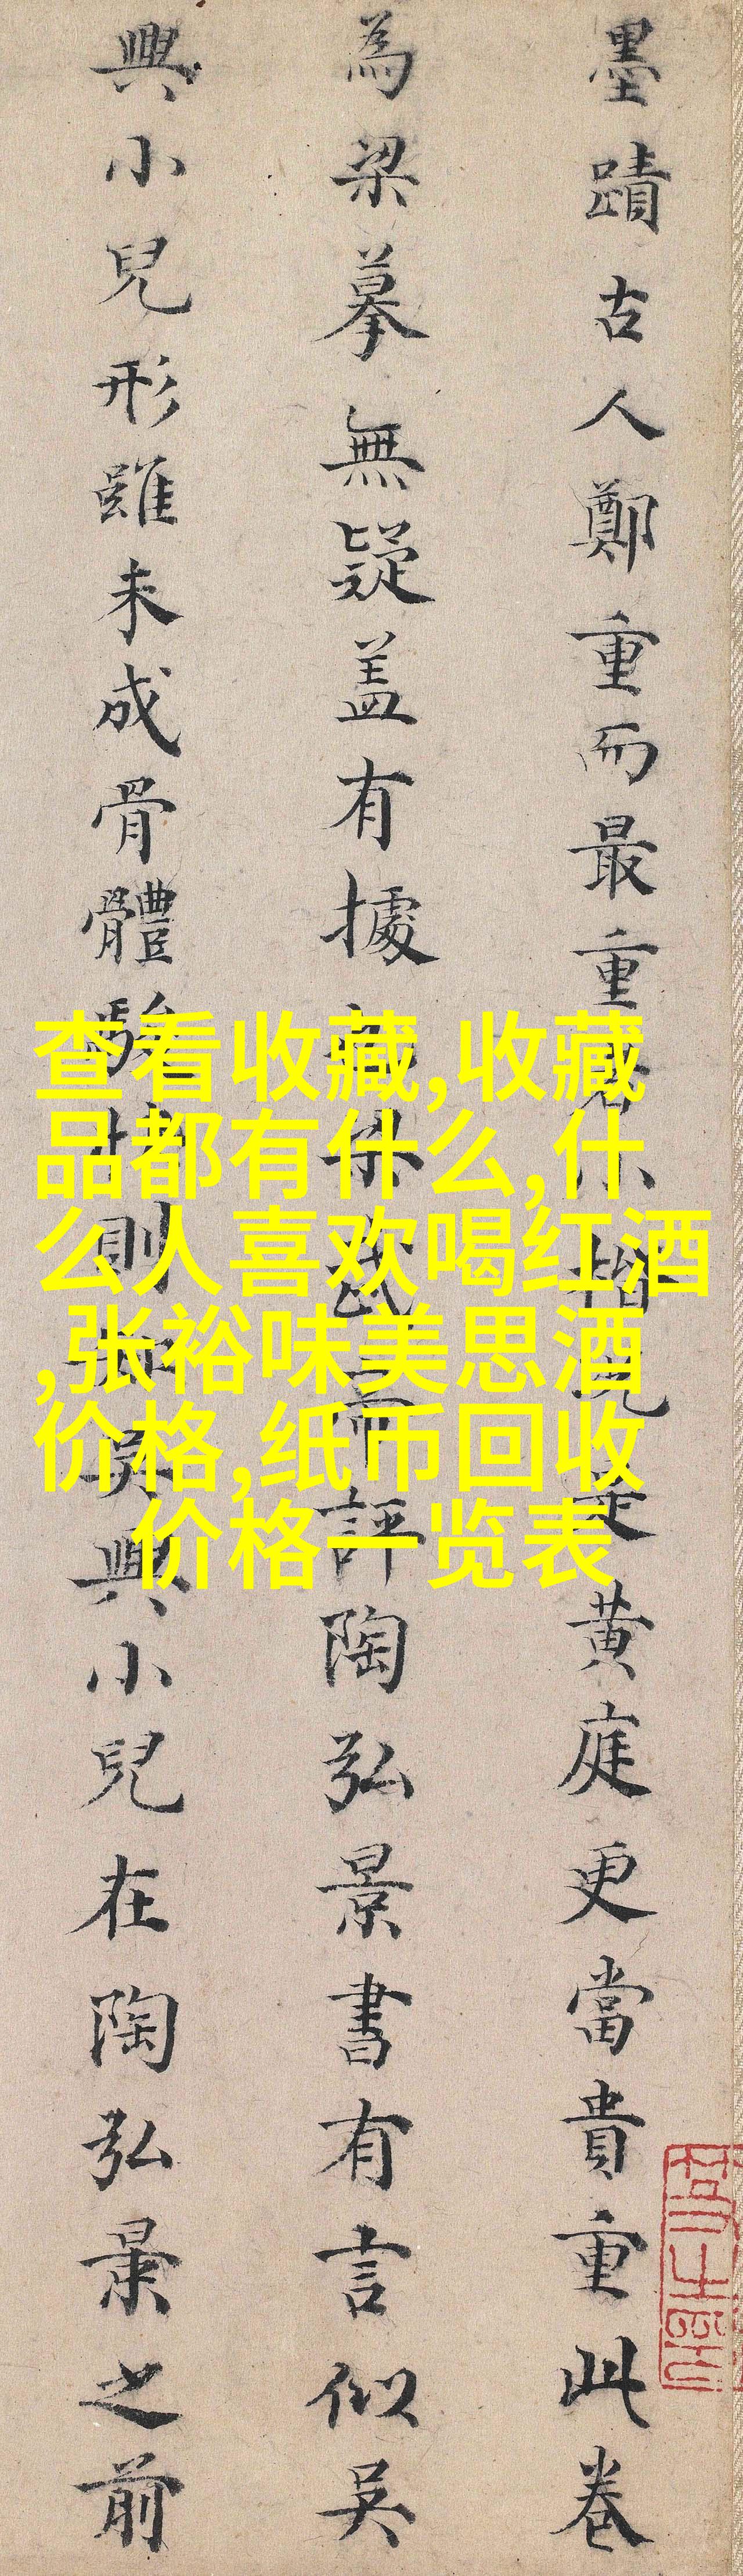 墨蹟古人鄭重而最重者小楷況是黃庭更當貴重此卷
為梁摹無疑蓋有據武帝評陶弘景書有言似吳
興小兒形雖未成骨體駿快則知吳興小兒在陶弘景之前
查看收藏,收藏
品都有什么,什
么人喜欢喝红酒
,张裕味美思酒
价格,纸币回收
价格一览表